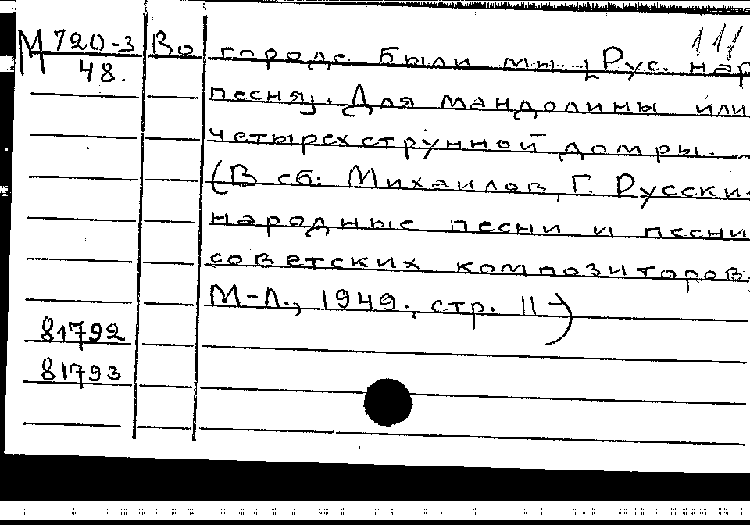 111
М 720-3 Во городе были мы [Рус. нар
48. песня]. Для мандолины или
четырехструнной домры. —
(В сб: Михайлов, Г. Русски
народные песни и песни
советских композиторов,
М-Л., 1949., стр. 11-)
81792
81793